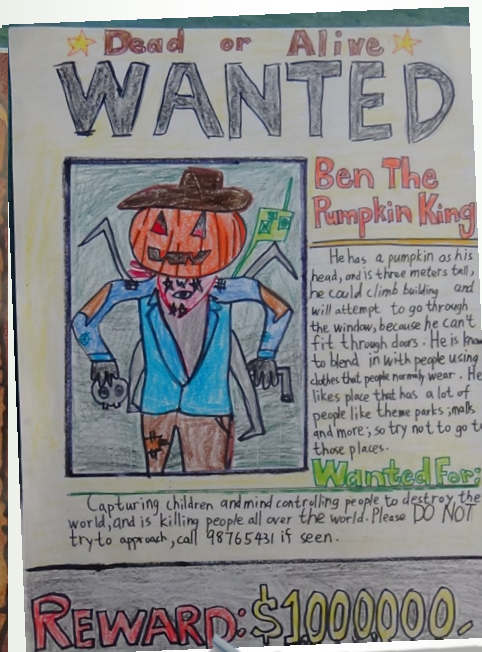 Dead or Alive
WANTED
Ben The
Pumpkin King
He has a pumpkin as his
head, and is three meters tall,
he could climb building and
will attempt to go through
the window, because he can't
fit through doors. He is know
to blend in with people using
clothes that people normaly wear. He
likes place that has a lot of
people like theme parks, malls
and more; so try not to go to
those places.
Wanted For:
Capturing children and mind controlling people to destroy the
world, and is killing people all over the world. Please DO NOT
try to approach, call 98765431 if seen.
REWARD: $1000000.